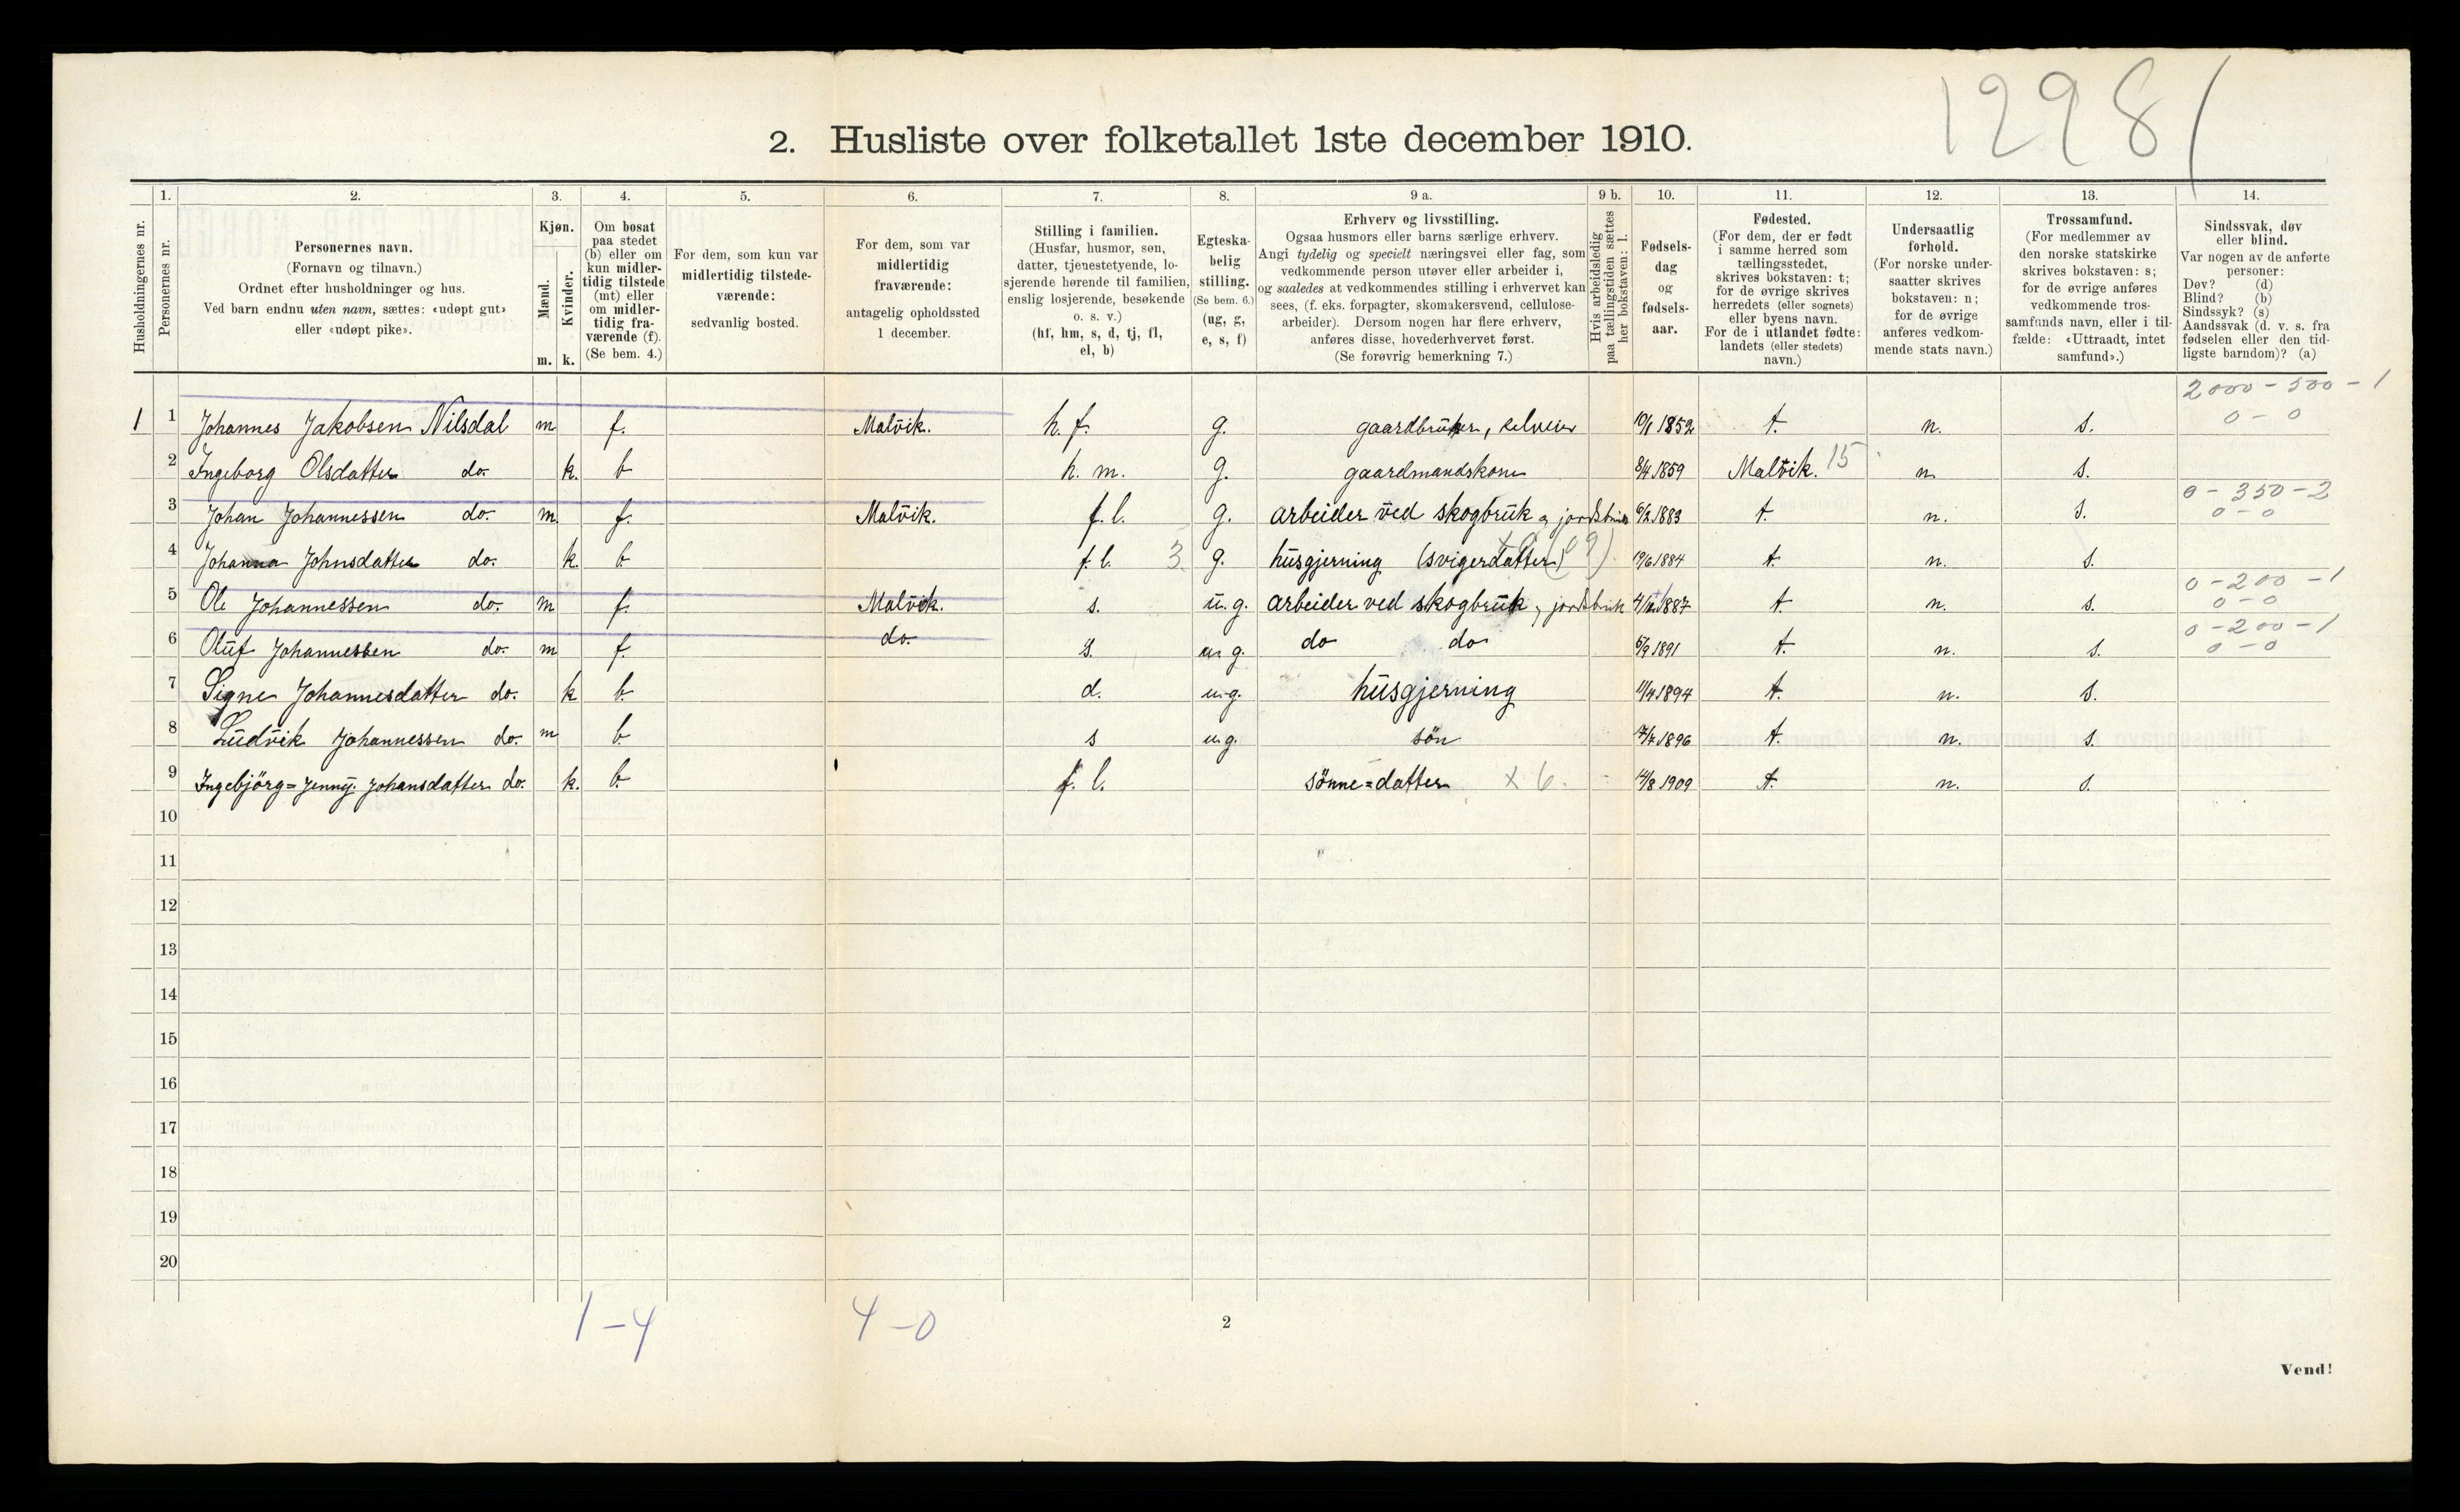 1298
2. Husliste over folketallet 1ste december 1910.
Husholdningernes nr.
1.
Personernes nr.
2.
Personernes navn.
(Fornavn og tilnavn.)
Ordnet efter husholdninger og hus.
Ved barn endnu uten navn, sættes: «udøpt gut»
eller «udøpt pike».
3.
Kjøn.
Mænd. Kvinder.
m. k.
4.
Om bosat
paa stedet
(b) eller om
kun midler-
tidig tilstede
(mt) eller
om midler-
tidig fra-
værende (f).
(Se bem. 4.)
5.
For dem, som kun var
midlertidig tilstede-
værende:
sedvanlig bosted.
6.
For dem, som var
midlertidig
fraværende:
antagelig opholdssted
1 december.
7.
Stilling i familien.
(Husfar, husmor, søn,
datter, tjenestetyende, lo-
sjerende hørende til familien,
enslig losjerende, besøkende
o. s. v.)
(hf, hm, s, d, tj, fl,
el, b)
8.
Egteska-
belig
stilling.
(Se bem. 6.)
(ug, g,
e, s, f)
9 a.
Erhverv og livsstilling.
Ogsaa husmors eller barns særlige erhverv.
Angi tydelig og specielt næringsvei eller fag, som
vedkommende person utøver eller arbeider i,
og saaledes at vedkommendes stilling i erhvervet kan
sees, (f. eks. forpagter, skomakersvend, cellulose-
arbeider). Dersom nogen har flere erhverv,
anføres disse, hovederhvervet først.
(Se forøvrig bemerkning 7.)
9 b.
Hvis arbeidsledig
paa tællingstiden sættes
her bokstaven: l.
10.
Fødsels-
dag
og
fødsels-
aar.
11.
Fødested.
(For dem, der er født
i samme herred som
tællingsstedet,
skrives bokstaven: t;
for de øvrige skrives
herredets (eller sognets)
eller byens navn.
For de i utlandet fødte:
landets (eller stedets)
navn.)
12.
Undersaatlig
forhold.
(For norske under-
saatter skrives
bokstaven: n;
for de øvrige
anføres vedkom-
mende stats navn.)
13.
Trossamfund.
(For medlemmer av
den norske statskirke
skrives bokstaven: s;
for de øvrige anføres
vedkommende tros-
samfunds navn, eller i til-
fælde: «Uttraadt, intet
samfund».)
14.
Sindssvak, døv
eller blind.
Var nogen av de anførte
personer:
Døv? (d)
Blind? (b)
Sindssyk? (s)
Aandssvak (d. v. s. fra
fødselen eller den tid-
ligste barndom)? (a)
2000 - 500 - 1
1 1 Johannes Jakobsen Nilsdal m f. Malvik. h. f. g. gaardbruker, selveier 10/1 1852 t. n. s. 0 - 0
2 Ingeborg Olsdatter do. k. b h. m. g. gaardmandskone 8/4 1859 Malvik. 15 n. s.
0 - 350 - 2
3 Johan Johannessen do. m. f. Malvik. f. l. g. arbeider ved skogbruk og jordbruk 6/2 1883 t. n. s. 0 - 0
4 Johanna Johnsdatter do. k. b f. l. 3 g. husgjerning (svigerdatter) 19/6 1884 t. n. s.
0 - 200 - 1
5 Ole Johannessen do. m f. Malvik. s. u. g. arbeider ved skogbruk og jordbruk 1887 t. n. s. 0 - 0
0 - 200 - 1
6 Oluf Johannessen do. m f. do. s. u. g. do do 5/9 1891 t. n. s. 0 - 0
7 Signe Johannesdatter do. k b. d. u. g. husgjerning 11/4 1894 t. n. s.
8 Ludvik Johannessen do. m b. s u. g. søn 7/7 1896 t. n. s.
9 Ingebjörg=Jenny. Johansdatter do. k. b. f. l. sönne=datter x 6. 14/8 1909 t. n. s.
10
11
12
13
14
15
16
17
18
19
20
1 - 4 4 - 0
2
Vend!